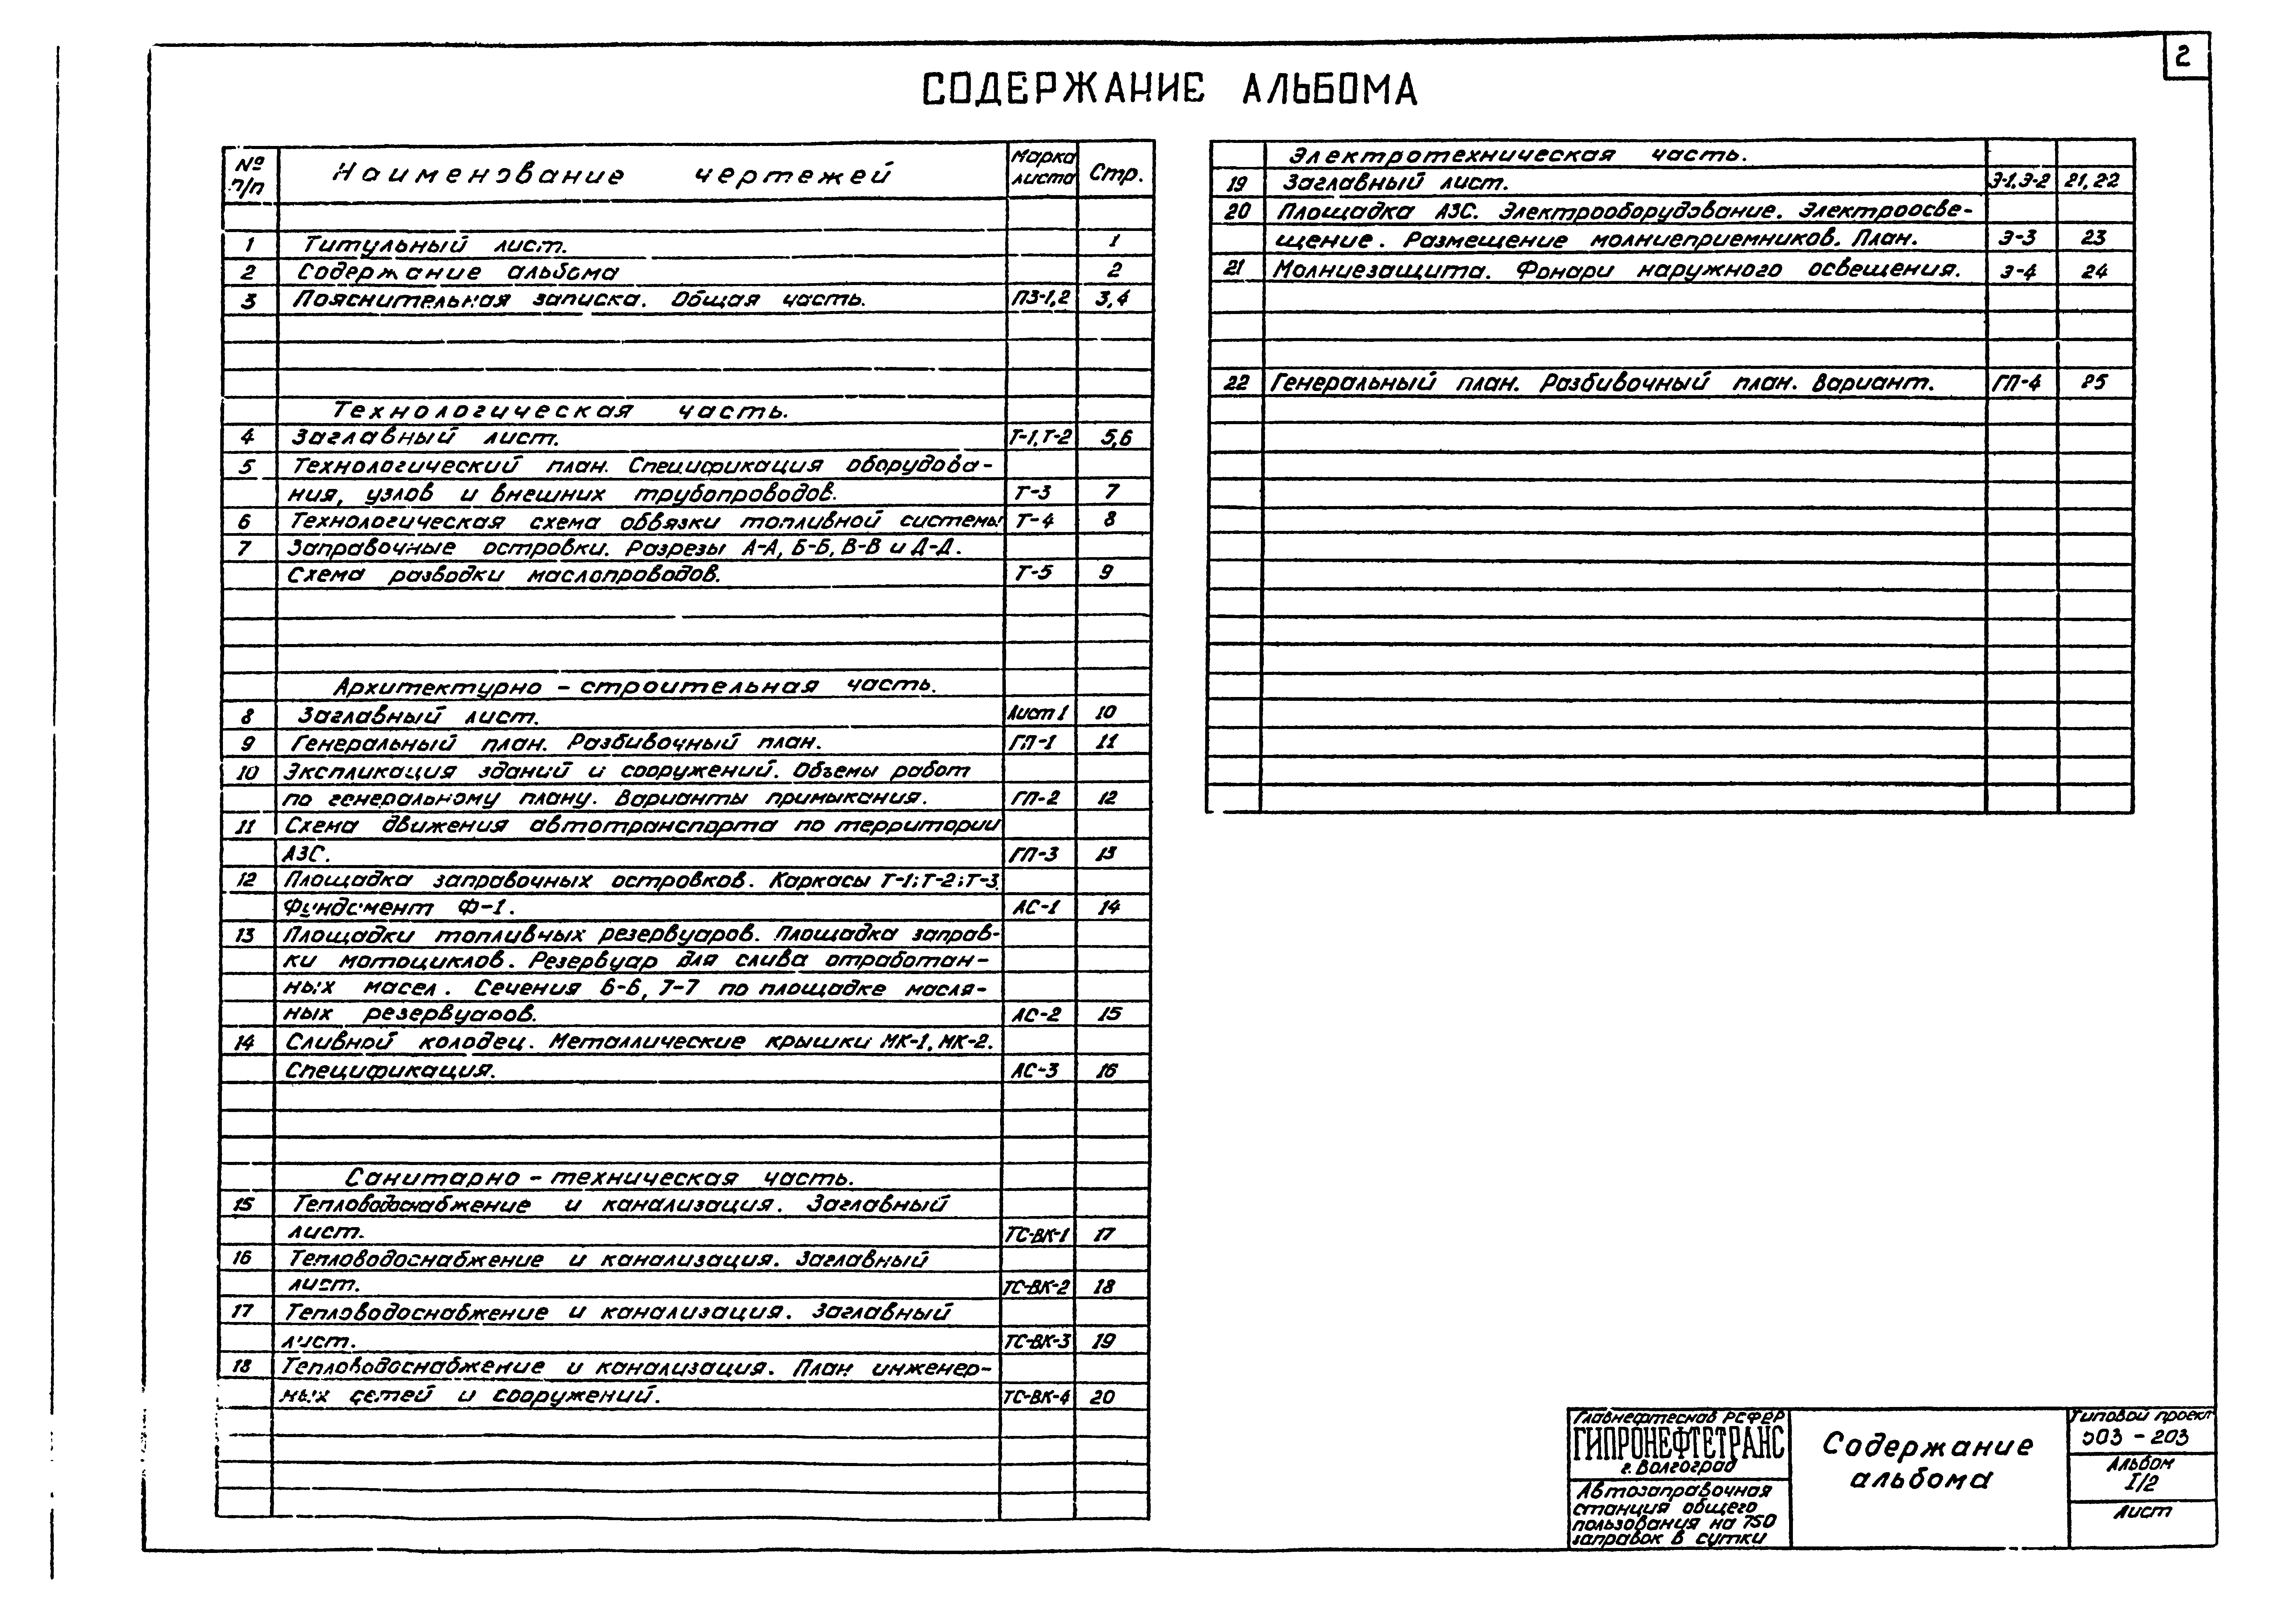 2
СОДЕРЖАНИЕ АЛЬБОМА
№ п/п Наименование чертежей Марка листа Стр.
1 Титульный лист. 1
2 Содержание альбома 2
3 Пояснительная записка. Общая часть. ПЗ-1,2 3,4
Технологическая часть.
4 Заглавный лист. Т-1, Т-2 5,6
5 Технологический план. Спецификация оборудова-
ния, узлов и внешних трубопроводов. Т-3 7
6 Технологическая схема обвязки топливной системы Т-4 8
7 Заправочные островки. Разрезы А-А, Б-Б, В-В и Д-Д.
Схема разводки маслопроводов. Т-5 9
Архитектурно - строительная часть.
8 Заглавный лист. Лист 1 10
9 Генеральный план. Разбивочный план. ГП-1 11
10 Экспликация зданий и сооружений. Объемы работ
по генеральному плану. Варианты примыкания. ГП-2 12
11 Схема движения автотранспорта по территории
АЗС. ГП-3 13
12 Площадка заправочных островков. Каркасы Т-1; Т-2; Т-3.
Фундамент Ф-1. АС-1 14
13 Площадки топливных резервуаров. Площадка заправ-
ки мотоциклов. Резервуар для слива отработан-
ных масел. Сечения 6-6, 7-7 по площадке масля-
ных резервуаров. АС-2 15
14 Сливной колодец. Металлические крышки МК-1, МК-2.
Спецификация. АС-3 16
Санитарно - техническая часть.
15 Тепловодоснабжение и канализация. Заглавный
лист. ТС-ВК-1 17
16 Тепловодоснабжение и канализация. Заглавный
лист. ТС-ВК-2 18
17 Тепловодоснабжение и канализация. Заглавный
лист. ТС-ВК-3 19
18 Тепловодоснабжение и канализация. План инженер-
ных сетей и сооружений. ТС-ВК-4 20
Электротехническая часть.
19 Заглавный лист. Э-1, Э-2 21, 22
20 Площадка АЗС. Электрооборудование. Электроосве-
щение. Размещение молниеприемников. План. Э-3 23
21 Молниезащита. Фонари наружного освещения. Э-4 24
22 Генеральный план. Разбивочный план. Вариант. ГП-4 25
Главнефтеснаб РСФСР
ГИПРОНЕФТЕТРАНС
г. Волгоград
Автозаправочная
станция общего
пользования на 750
заправок в сутки
Содержание
альбома
Типовой проект
503 - 203
Альбом
I/2
Лист